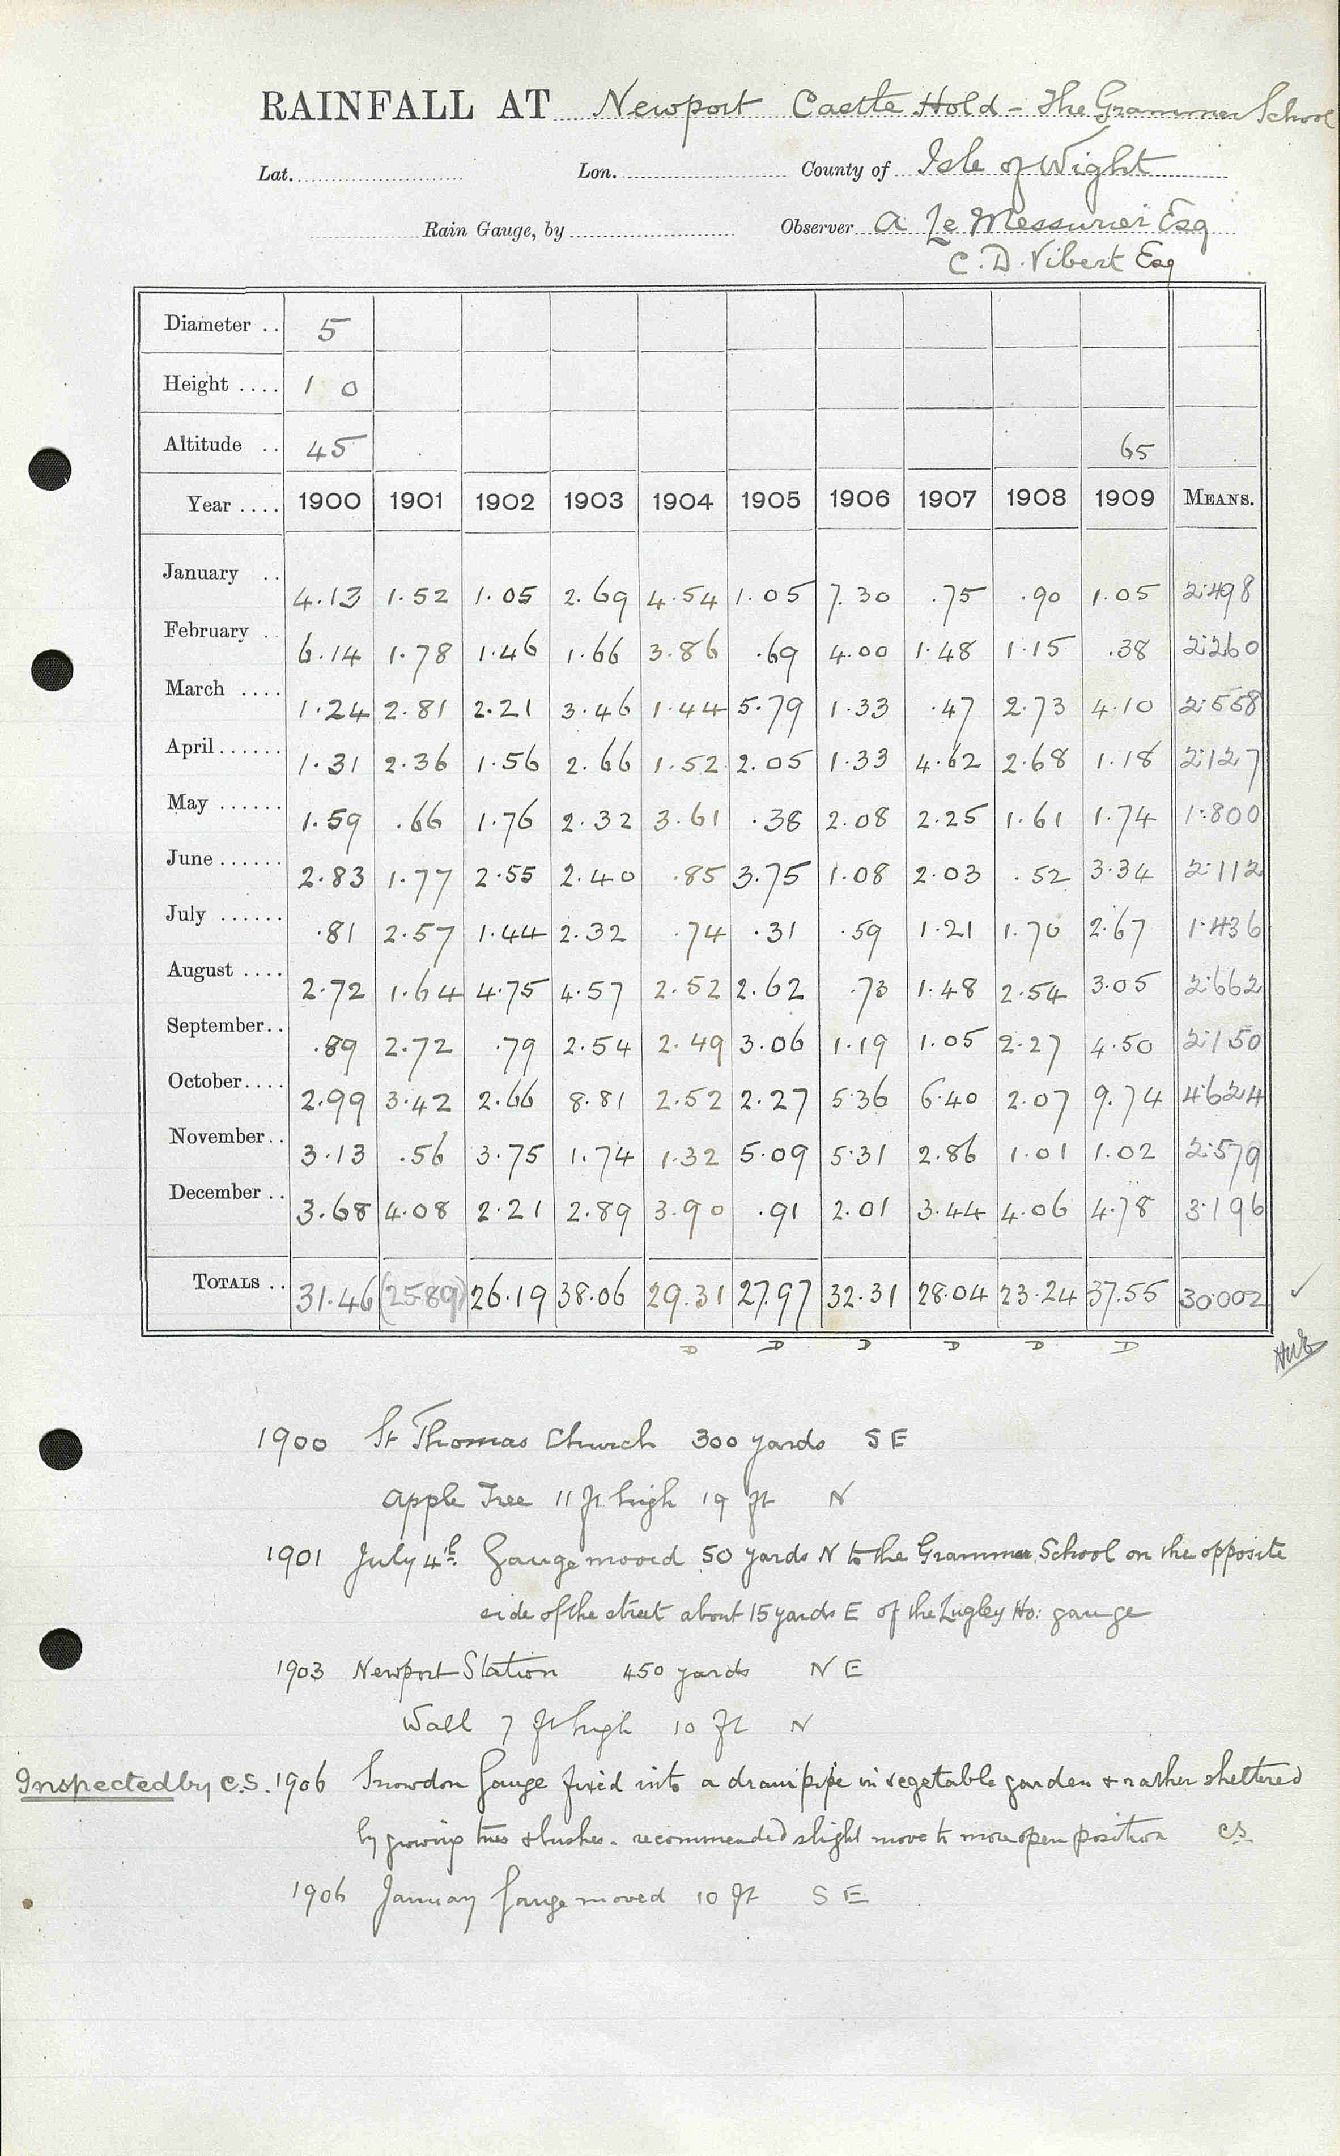 RAINFALL AT Newport Castle Hold - The Grammer School
Lat. Lon. County of Isle of Wight
Rain Gauge, by Observer A Le Messurier Esq
C. D. Vibert Esq
Diameter .. 5
Height .... 1 0
Altitude .. 45 65
Year .... 1900 1901 1902 1903 1904 1905 1906 1907 1908 1909 MEANS.
January .. 4.13 1.52 1.05 2.69 4.54 1.05 7.30 .75 .90 1.05 2.498
February .. 6.14 1.78 1.46 1.66 3.86 .69 4.00 1.48 1.15 .38 2.260
March .... 1.24 2.81 2.21 3.46 1.44 5.79 1.33 .47 2.73 4.10 2.558
April ...... 1.31 2.36 1.56 2.66 1.52 2.05 1.33 4.62 2.68 1.18 2.127
May ...... 1.59 .66 1.76 2.32 3.61 .38 2.08 2.25 1.61 1.74 1.800
June ...... 2.83 1.77 2.55 2.40 .85 3.75 1.08 2.03 .52 3.34 2.112
July ...... .81 2.57 1.44 2.32 .74 .31 .59 1.21 1.70 2.67 1.436
August .... 2.72 1.64 4.75 4.57 2.52 2.62 .73 1.48 2.54 3.05 2.662
September.. .89 2.72 .79 2.54 2.49 3.06 1.19 1.05 2.27 4.50 2.150
October.... 2.99 3.42 2.66 8.81 2.52 2.27 5.36 6.40 2.07 9.74 4.624
November.. 3.13 .56 3.75 1.74 1.32 5.09 5.31 2.86 1.01 1.02 2.579
December .. 3.68 4.08 2.21 2.89 3.90 .91 2.01 3.44 4.06 4.78 3.196
TOTALS .. 31.46 (25.89) 26.19 38.06 29.31 27.97 32.31 28.04 23.24 37.55 30.002 ✓
D D D D D D
1900 St Thomas Church 300 yards S E
Apple Tree 11 ft high 19 ft N
1901 July 4th Gauge moved 50 yards N to the Grammer School on the opposite
side of the street about 15 yards E of the Lugley Ho: gauge
1903 Newport Station 450 yards N E
Wall 7 ft high 10 ft N
Inspected by C.S. 1906 Snowdon Gauge fixed into a drain pipe in vegetable garden + rather sheltered
by growing trees & bushes. recommended slight move to more open position CS
1906 January Gauge moved 10 ft S E